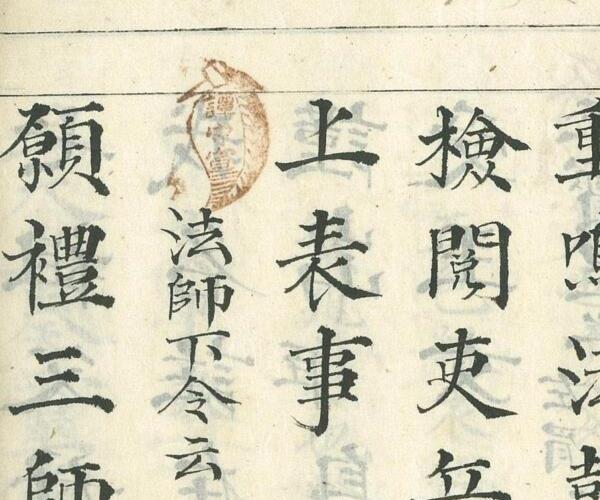 重鳴法
檢閱吏兵
上表事
法師下令云
願禮三師